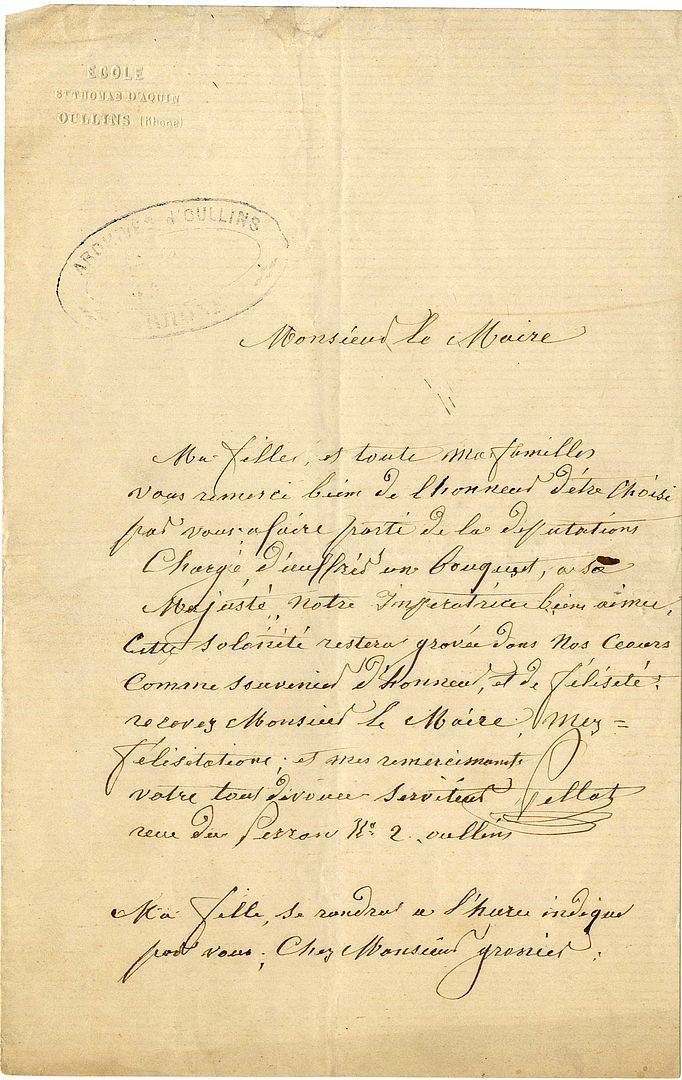 ECOLE
ST THOMAS D'AQUIN
OULLINS (Rhone)
ARCHIVES D'OULLINS
RHONE
Monsieur le Maire
Ma fille, et toute ma famille
vous remerci bien de lhonneur d'être choisi
par vous a faire parti de la deputations
Chargé d'euffrir un bouquet, a sa
Majésté, notre Imperatrice bien aimée,
Cette solenité restera gravée dans nos Ceours
Comme souvenier d'honneur, et de félisité:
recevez Monsieur le Maire, mes=
félisitations; et mes remercimants
votre tout dévouée serviteur Pellat
reue du Perron No 2. oullins
Ma fille, se randra a l'hure indique
par vous; Chez Monsieur